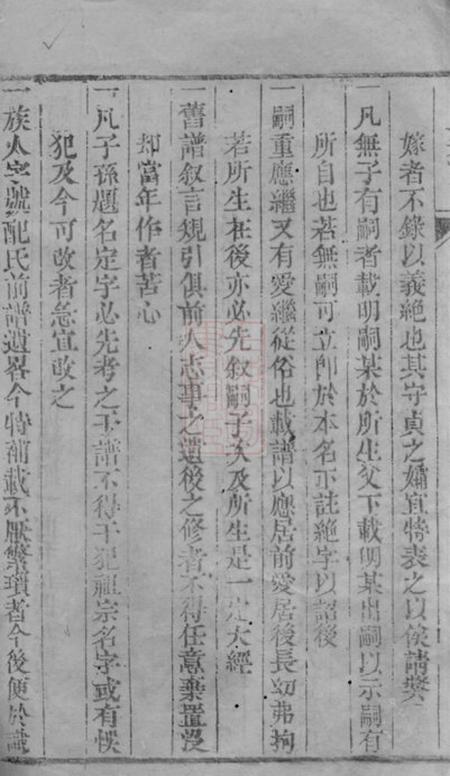 嫁者不錄以義絶也其守貞之孀宜特表之以俟請獎
一凡無子有嗣者載明嗣某於所生父下載明某出嗣以示嗣有
所自也若無嗣可立即於本名下註絶字以詔後
一嗣重應繼又有愛繼從俗也載譜以應居前愛居後長幼弗拘
若所生在後亦必先叙嗣子次及所生是一定大經
一舊譜叙言規引俱前人志事之遺後之修者不得任意棄置没
却當年作者苦心
一凡子孫題名定字必先考之于譜不得干犯祖宗名字或有悞
犯及今可改者急宜改之
一族人字號配氏前譜遺畧今特補載不厭繁瑣者令後便於識